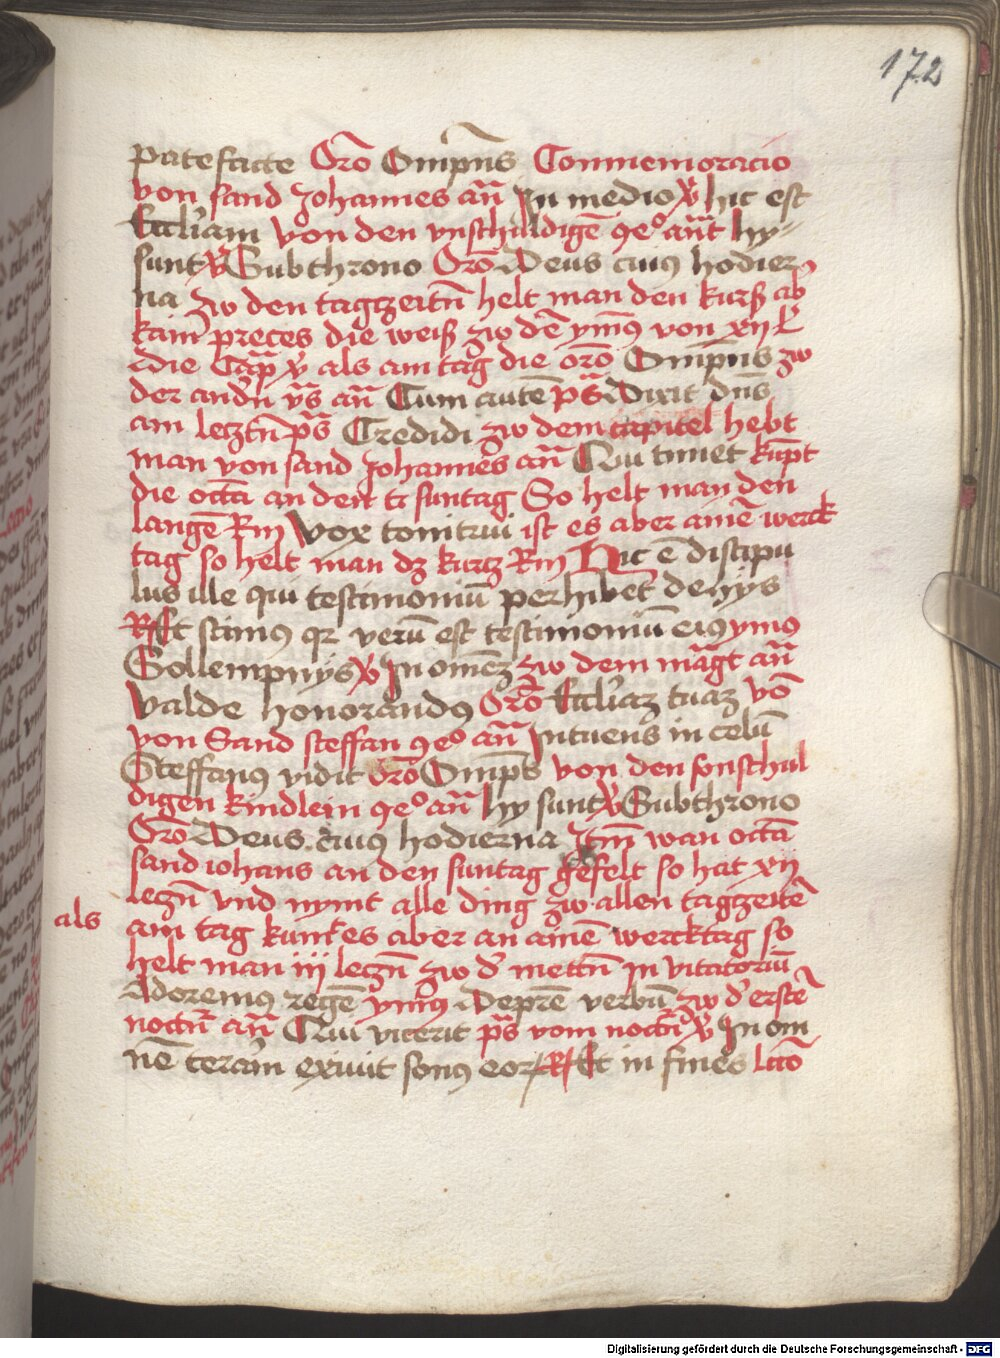 172
patefacte Oro᷑ Omp̄ns Conmemoracio
von sand Johannes an̄ In medio v̓ hic est
Eccl'iam von den vnschuldigē ꝯe° an̄t hy
sunt v̓ Sub throno Oro᷑ Deus cuiꝰ hodier
na zw den tagzeitn̄ helt man den kurß ab
kain' preces die weiß zw dē ymꝰ von xij
Die Cap̄ v̓ als am tag die oro᷑ Omp̄ns zw
der andn̄ vs̄ an̄ Cum autē ps̄ Dixit dn̄s
am leczn̄ ps̄ Credidi zw dem capitel hebt
man von sand Johannes an̄ Qui timet kūpt
die octā an dem suntag So helt man den
langē Rm̄ Vox tonitrui ist es aber ainē werck
tag so helt man dz kurcz Rm̄ Hic ē discipu
lus ille qui testimoniū perhibet de hijs
Et scimꝰ qr verū est testimoniū eiꝰ ymꝰ
Sollempnijs v̓ In omēz zw dem māgt an̄
Valde honorandꝰ Oro᷑ Eccl'iaz tuaz vō
von Sand steffan ꝯe° an̄ Intuens in celū
Steffanꝰ vidit oro᷑ Omp̄s von den sonschul
digen kindlein ꝯe° an̄ hy sunt v̓ Sub throno
Oro᷑ Deus cuiꝰ hodierna Itm̄ wan octā
sand iohans an den suntag gefelt so hat xij
leczn̄ vnd nymt alle ding zw allen tagzeitē
als am tag kumt es aber an ainē wercktag so
helt man iij leczn̄ zw d' mettn̄ Inuitatoriū
Adoremꝰ regē ymꝰ De prē verbū zw d' erstē
noctn̄ an̄ Qui vicerit ps̄ vom noctn̄ v̓ In om
nē terram exiuit sonꝰ eoꝝ R Et in fines lcc̄o
Digitalisierung gefördert durch die Deutsche Forschungsgemeinschaft - DFG